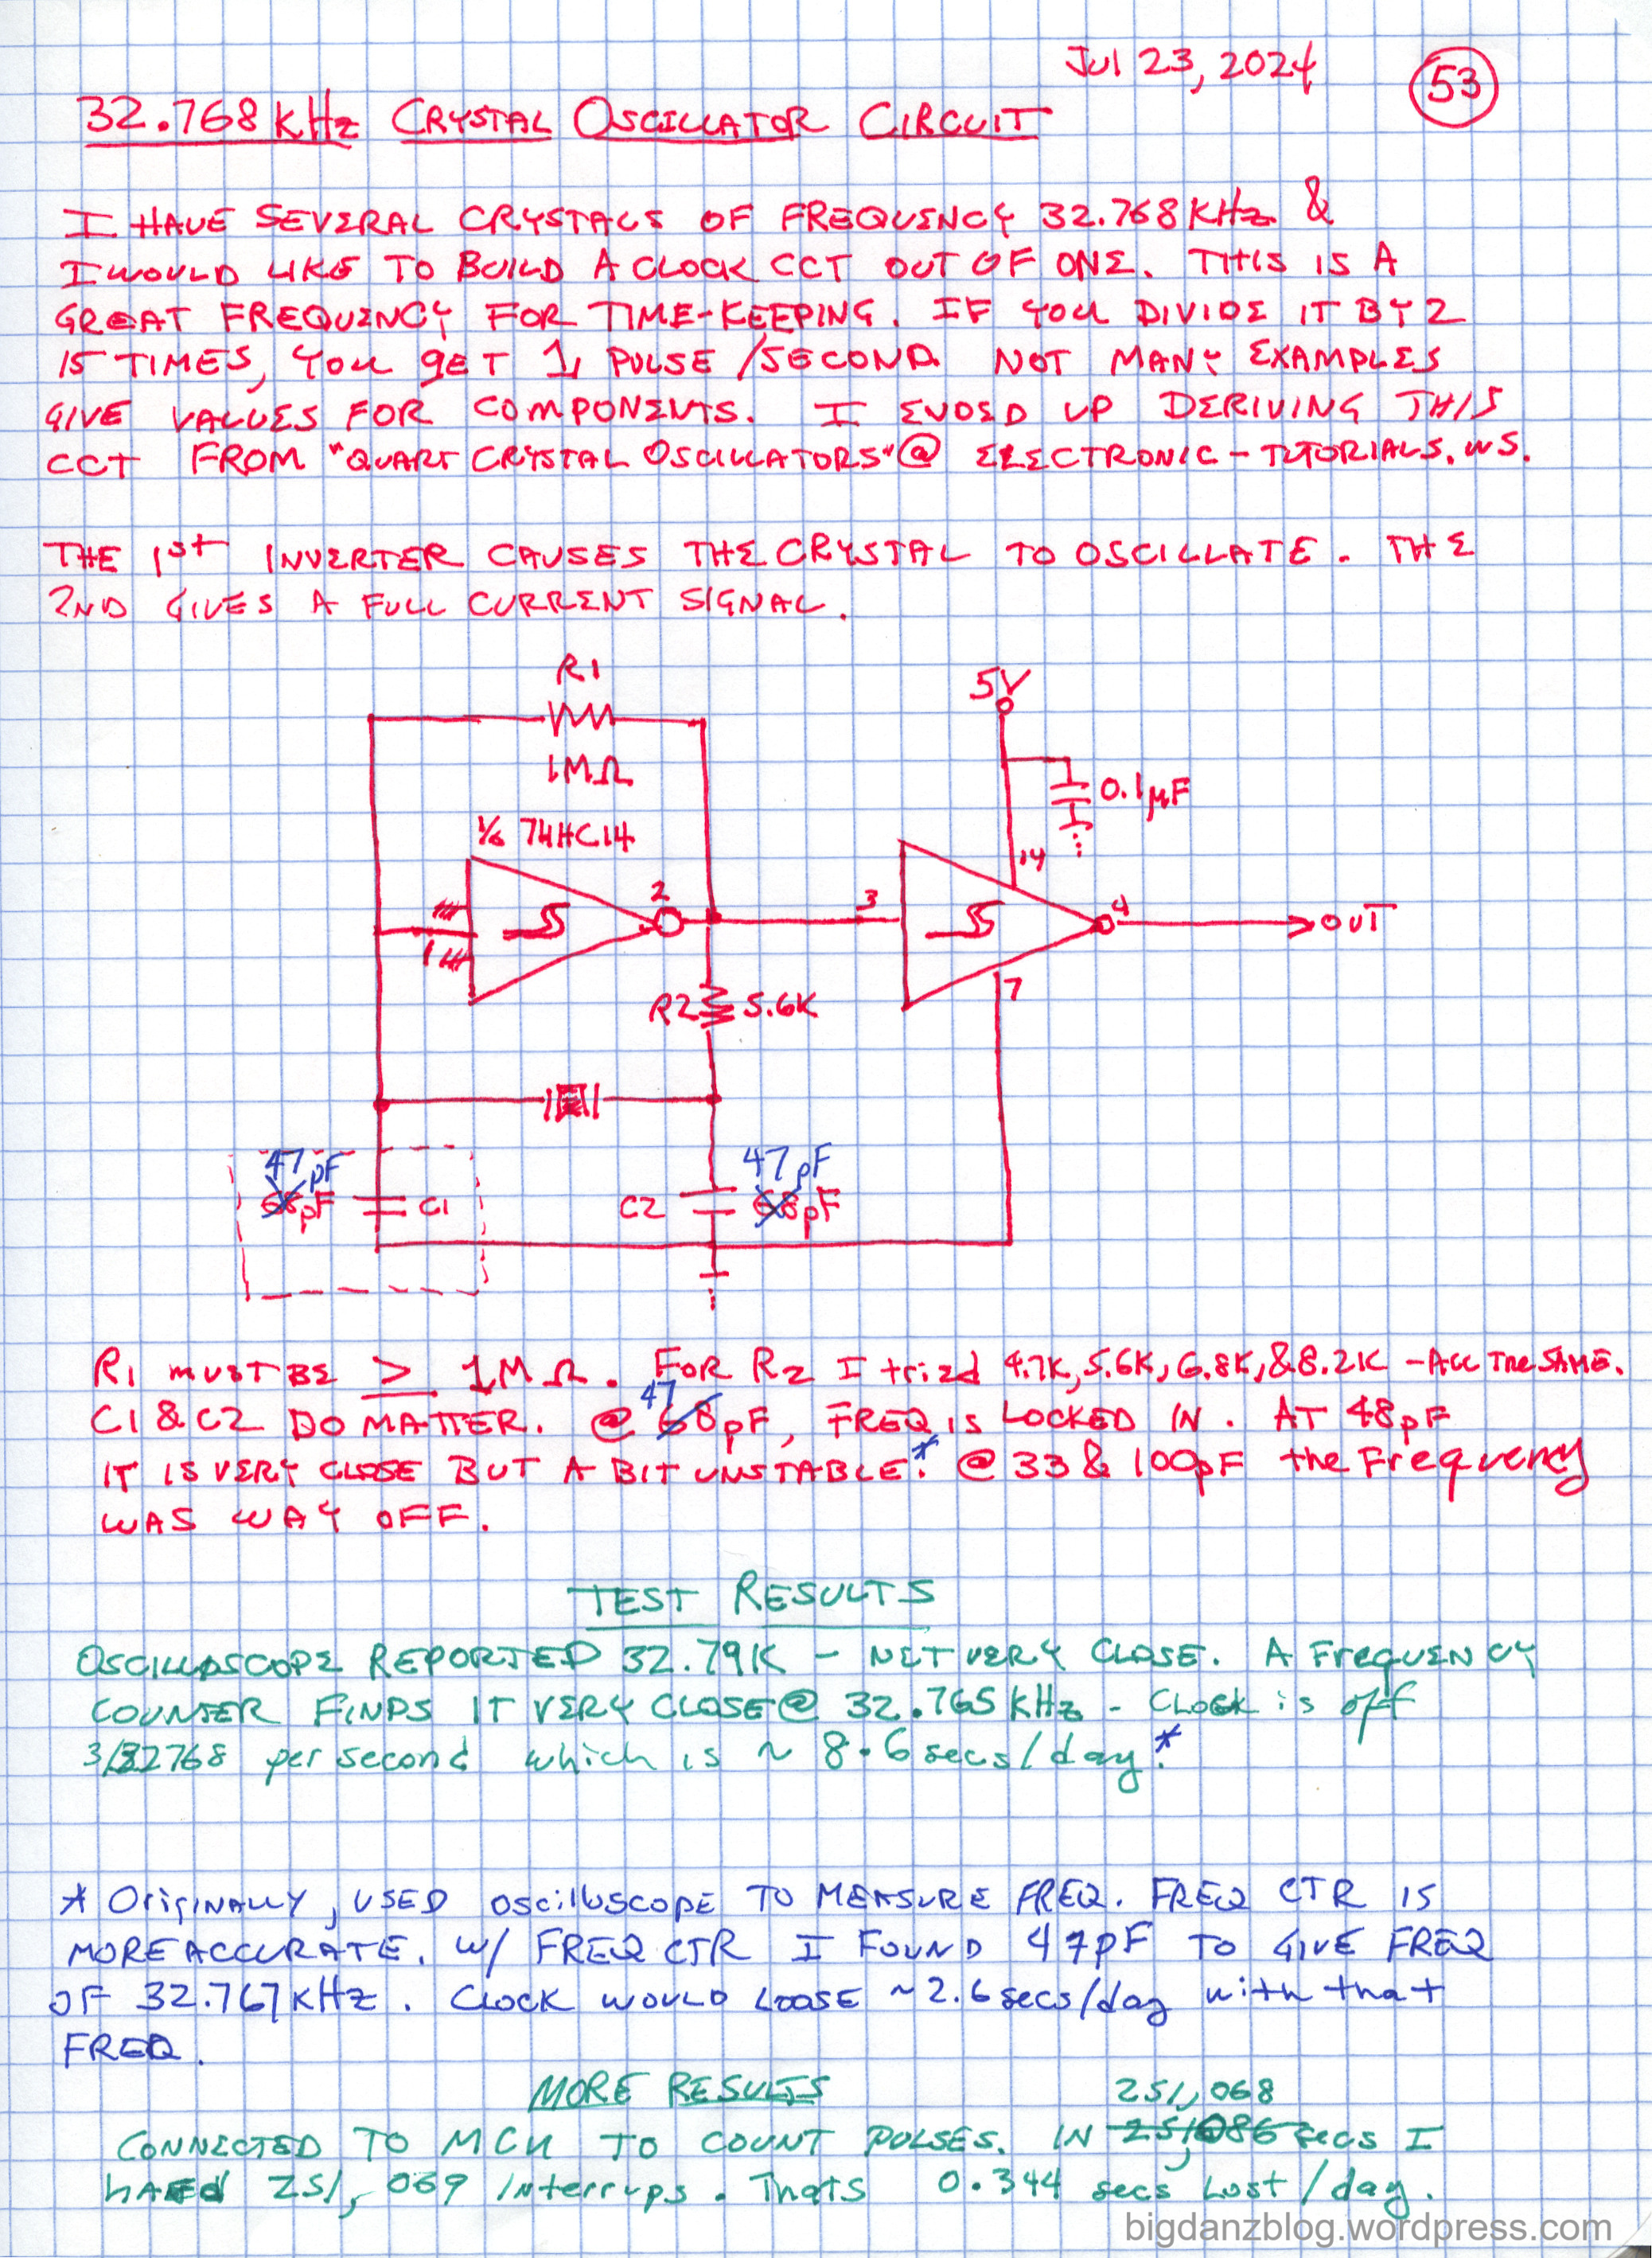 Jul 23, 2024
53
32.768 KHz CRYSTAL OSCILLATOR CIRCUIT
I HAVE SEVERAL CRYSTALS OF FREQUENCY 32.768 KHz &
I WOULD LIKE TO BUILD A CLOCK CCT OUT OF ONE. THIS IS A
GREAT FREQUENCY FOR TIME-KEEPING. IF YOU DIVIDE IT BY 2
15 TIMES, YOU GET 1 PULSE/SECOND. NOT MANY EXAMPLES
GIVE VALUES FOR COMPONENTS. I ENDED UP DERIVING THIS
CCT FROM "QUART CRYSTAL OSCILLATORS" @ ELECTRONIC-TUTORIALS.WS.
THE 1st INVERTER CAUSES THE CRYSTAL TO OSCILLATE. THE
2ND GIVES A FULL CURRENT SIGNAL.
R1
1MΩ
1/6 74HC14
5V
0.1µF
14
1
2
3
4
OUT
7
R2 5.6K
47pF
68pF C1
47pF
C2 68pF
R1 MUST BE ≥ 1MΩ. FOR R2 I tried 4.7K, 5.6K, 6.8K, & 8.2K - ALL THE SAME.
C1 & C2 DO MATTER. @ 47 68pF, FREQ IS LOCKED IN. AT 48pF
IT IS VERY CLOSE BUT A BIT UNSTABLE.* @ 33 & 100pF the Frequency
WAS WAY OFF.
TEST RESULTS
OSCILLOSCOPE REPORTED 32.79K - NOT VERY CLOSE. A FREQUENCY
COUNTER FINDS IT VERY CLOSE @ 32.765 KHz - CLOCK is off
3/32768 per second which is ~ 8.6 secs/day.*
* ORIGINALLY, USED OSCILLOSCOPE TO MEASURE FREQ. FREQ CTR IS
MORE ACCURATE. W/ FREQ CTR I FOUND 47pF TO GIVE FREQ
OF 32.767 KHz. CLOCK WOULD LOOSE ~2.6 secs/day with that
FREQ.
MORE RESULTS
251,068
CONNECTED TO MCU TO COUNT PULSES. IN 251,086 secs I
had 251,069 Interrups. Thats 0.344 secs Lost/day.
bigdanzblog.wordpress.com